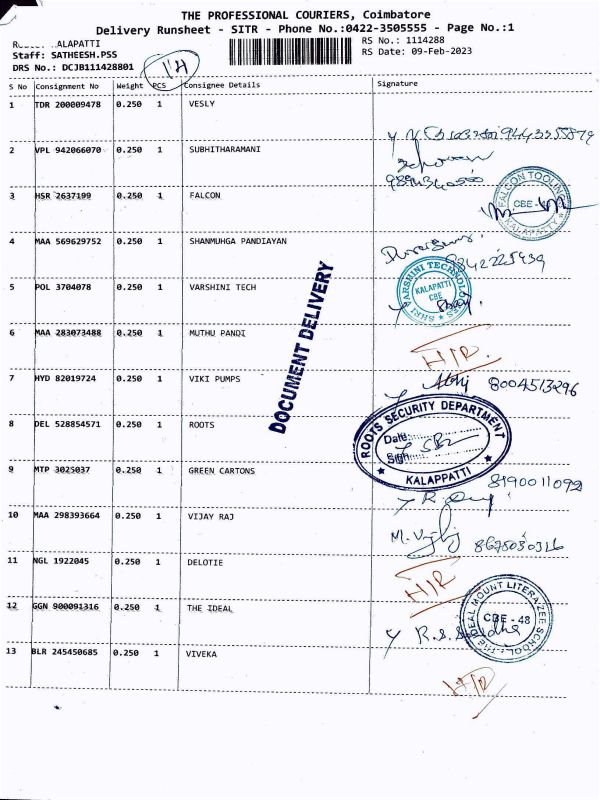 THE PROFESSIONAL COURIERS, Coimbatore
Delivery Runsheet - SITR - Phone No.:0422-3505555 - Page No.:1
ALAPATTI
RS No.: 1114288
Staff: SATHEESH.PSS
RS Date: 09-Feb-2023
DRS No.: DCJB111428801
14
S No Consignment No Weight PCS Consignee Details Signature
1 TDR 200009478 0.250 1 VESLY
9443355879
2 VPL 942066070 0.250 1 SUBHITHARAMANI
3 HSR 2637199 0.250 1 FALCON
FALCON TOOLING
CBE -
KALAPATTY
4 MAA 569629752 0.250 1 SHANMUHGA PANDIYAN
9342225439
5 POL 3704078 0.250 1 VARSHINI TECH
SHRI VARSHINI TECHNOLOGIES
KALAPATTI
CBE
6 MAA 283073488 0.250 1 MUTHU PANDI
H/R.
DOCUMENT DELIVERY
7 HYD 82019724 0.250 1 VIKI PUMPS
8004513296
8 DEL 528854571 0.250 1 ROOTS
ROOTS SECURITY DEPARTMENT
Date:
Sign:
KALAPPATTI
9 MTP 3025037 0.250 1 GREEN CARTONS
8190011092
10 MAA 298393664 0.250 1 VIJAY RAJ
M. Vijay
8675030316
11 NGL 1922045 0.250 1 DELOTIE
H/R
12 GGN 900091316 0.250 1 THE IDEAL
THE IDEAL MOUNT LITERA ZEE SCHOOL
CBE - 48
13 BLR 245450685 0.250 1 VIVEKA
H/R